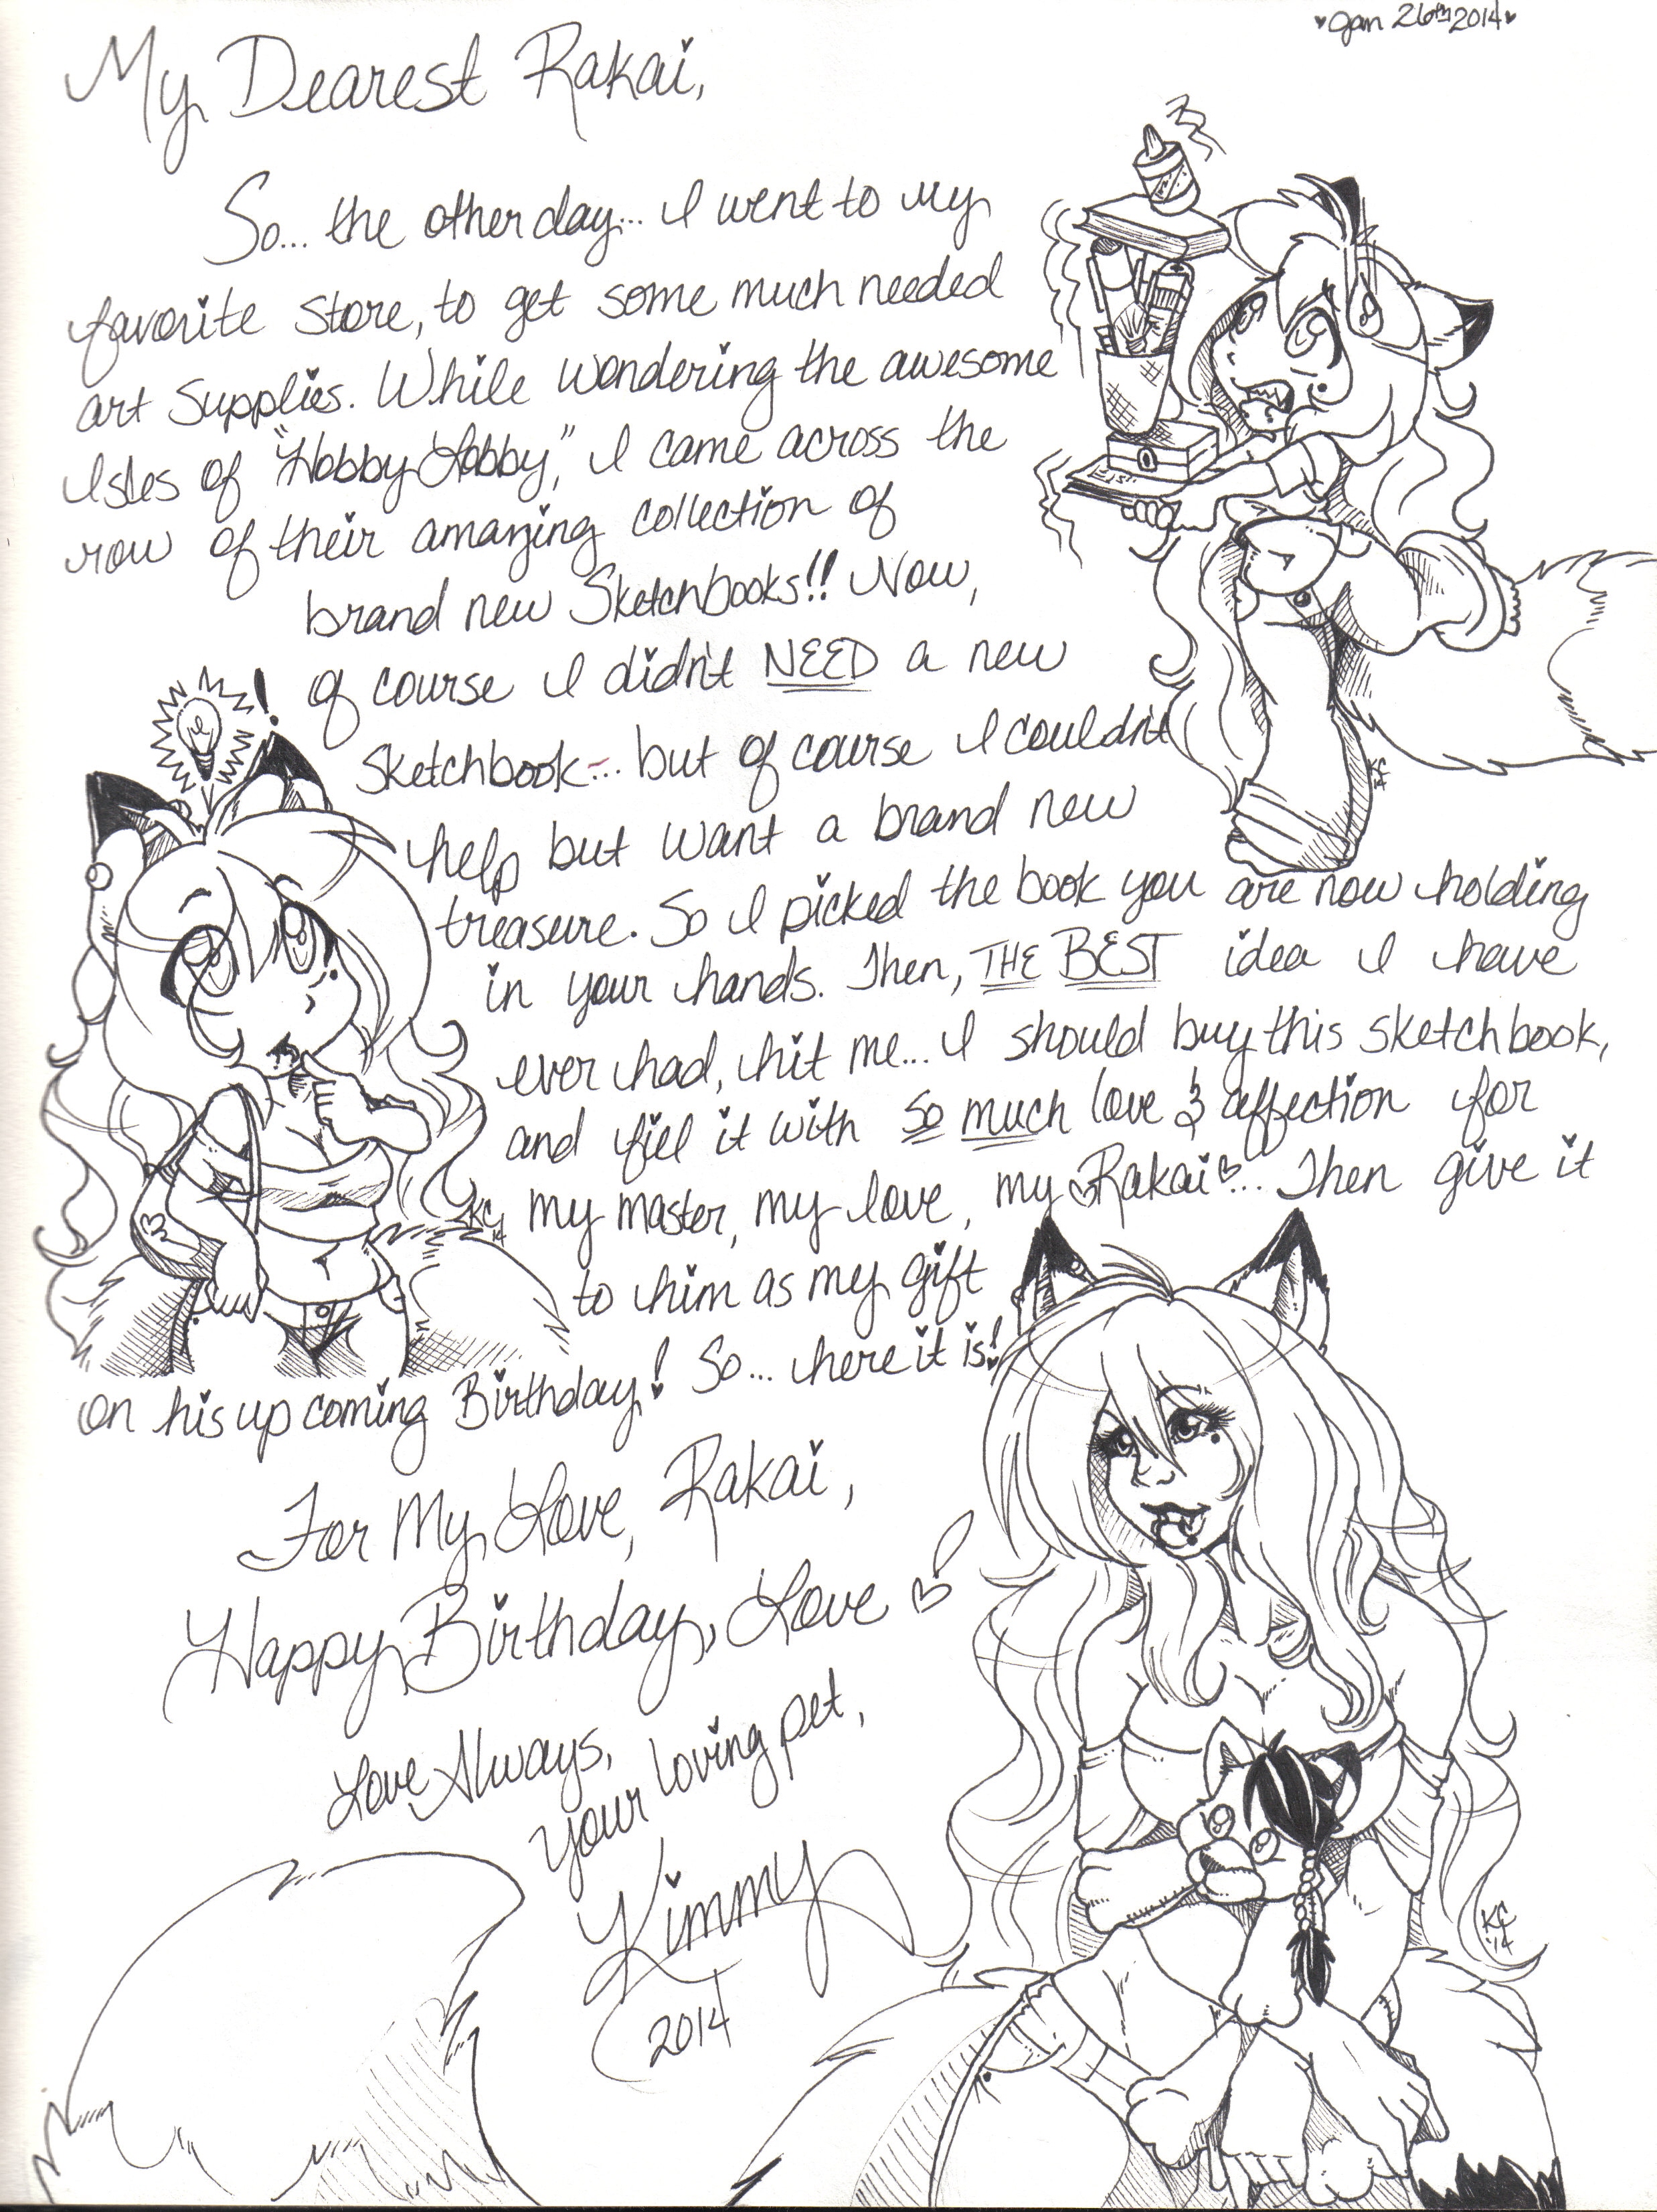 Jan 26th 2014
My Dearest Rakai,
So... the other day... I went to my
favorite store, to get some much needed
art supplies. While wondering the awesome
Isles of "Hobby Lobby," I came across the
row of their amazing collection of
brand new Sketchbooks!! Now,
of course I didn't NEED a new
sketchbook-... but of course I couldn't
help but want a brand new
treasure. So I picked the book you are now holding
in your hands. Then, THE BEST idea I have
ever had, hit me... I should buy this sketchbook,
and fill it with so much love & affection for
my master, my love, my ♡Rakai♡... Then give it
to him as my gift
on his up coming Birthday! So... here it is!
For My Love, Rakai,
Happy Birthday, Love ♡!
Love Always,
your loving pet,
Kimmy
2014
KC 14
KC 14
KC '14
!